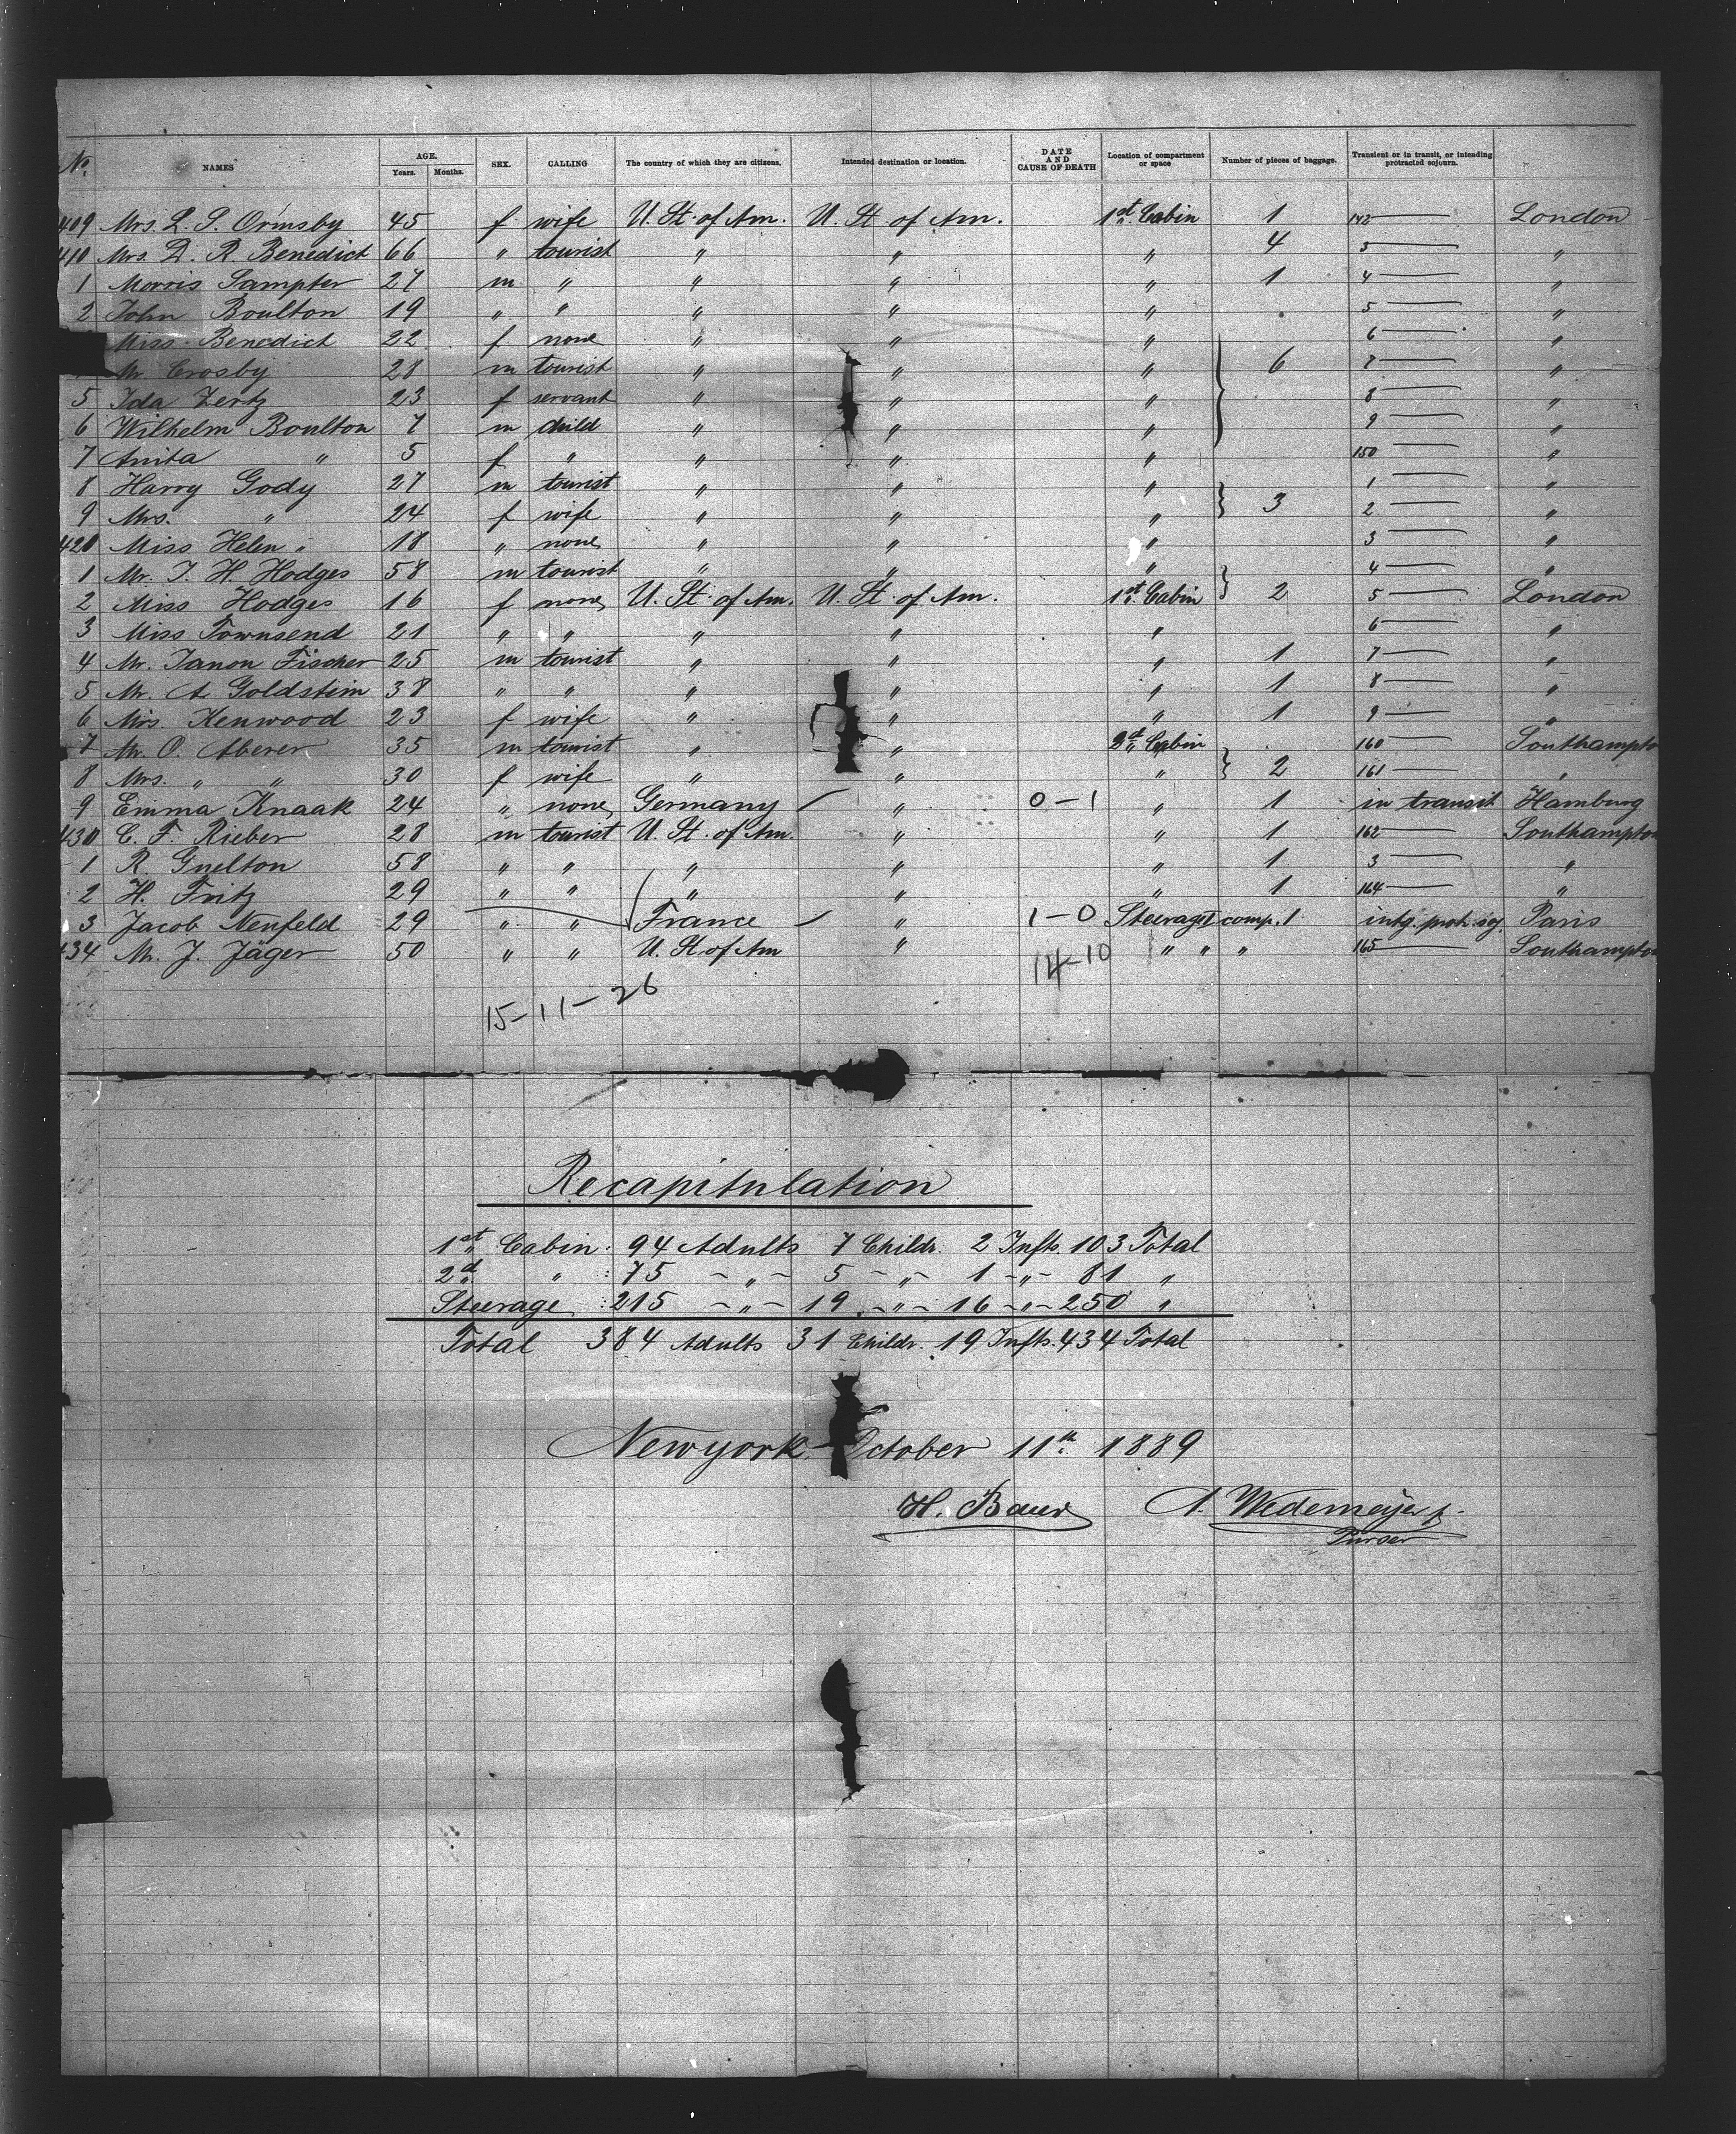 No. NAMES AGE. Years. Months. SEX. CALLING The country of which they are citizens. Intended destination or location. DATE AND CAUSE OF DEATH Location of compartment or space Number of pieces of baggage. Transient or in transit, or intending protracted sojourn.
409 Mrs. L. S. Ormsby 45 f wife U. St. of Am. U. St. of Am. 1st Cabin 1 142 — London
410 Mrs. D. R. Benedict 66 " tourist " " " 4 3 — "
1 Morris Sampter 27 m " " " " 1 4 — "
2 John Boulton 19 " " " " " 5 — "
Miss Benedict 22 f none " " " 6 — "
Mr. Crosby 28 m tourist " " " 6 7 — "
5 Ida Zertz 23 f servant " " " 8 — "
6 Wilhelm Boulton 7 m child " " " 9 — "
7 Anita " 5 f " " " " 150 — "
8 Harry Gody 27 m tourist " " " 1 — "
9 Mrs. " 24 f wife " " " 3 2 — "
420 Miss Helen " 18 " none " " " 3 — "
1 Mr. J. H. Hodges 58 m tourist " " " 4 — "
2 Miss Hodges 16 f none U. St. of Am. U. St. of Am. 1st Cabin 2 5 — London
3 Miss Townsend 21 " " " " " 6 — "
4 Mr. Janon Fischer 25 m tourist " " " 1 7 — "
5 Mr. A Goldstein 38 " " " " " 1 8 — "
6 Mrs. Kenwood 23 f wife " " " 1 9 — "
7 Mr. O. Aberer 35 m tourist " " 2d Cabin 160 — Southampton
8 Mrs. " " 30 f wife " " " 2 161 — "
9 Emma Knaak 24 " none Germany " 0-1 " 1 in transit Hamburg
430 C. F. Rieber 28 m tourist U. St. of Am. " " 1 162 — Southampton
1 R. Guelton 58 " " " " " 1 3 — "
2 H. Fritz 29 " " " " " 1 164 — "
3 Jacob Neufeld 29 " " France " 1-0 Steerage comp. 1 intg. protr. soj. Paris
434 Mr. J. Jäger 50 " " U. St. of Am " 14-10 " " " 165 — Southampton
15-11-26
Recapitulation
1st Cabin: 94 Adults 7 Childr. 2 Infts. 103 Total
2d " : 75 - " - 5 - " - 1 - " - 81 "
Steerage : 215 - " - 19 - " - 16 - " - 250 "
Total 384 Adults 31 Childr. 19 Infts. 434 Total
Newyork October 11th 1889
H. Baur A. Wedemeyer
Purser